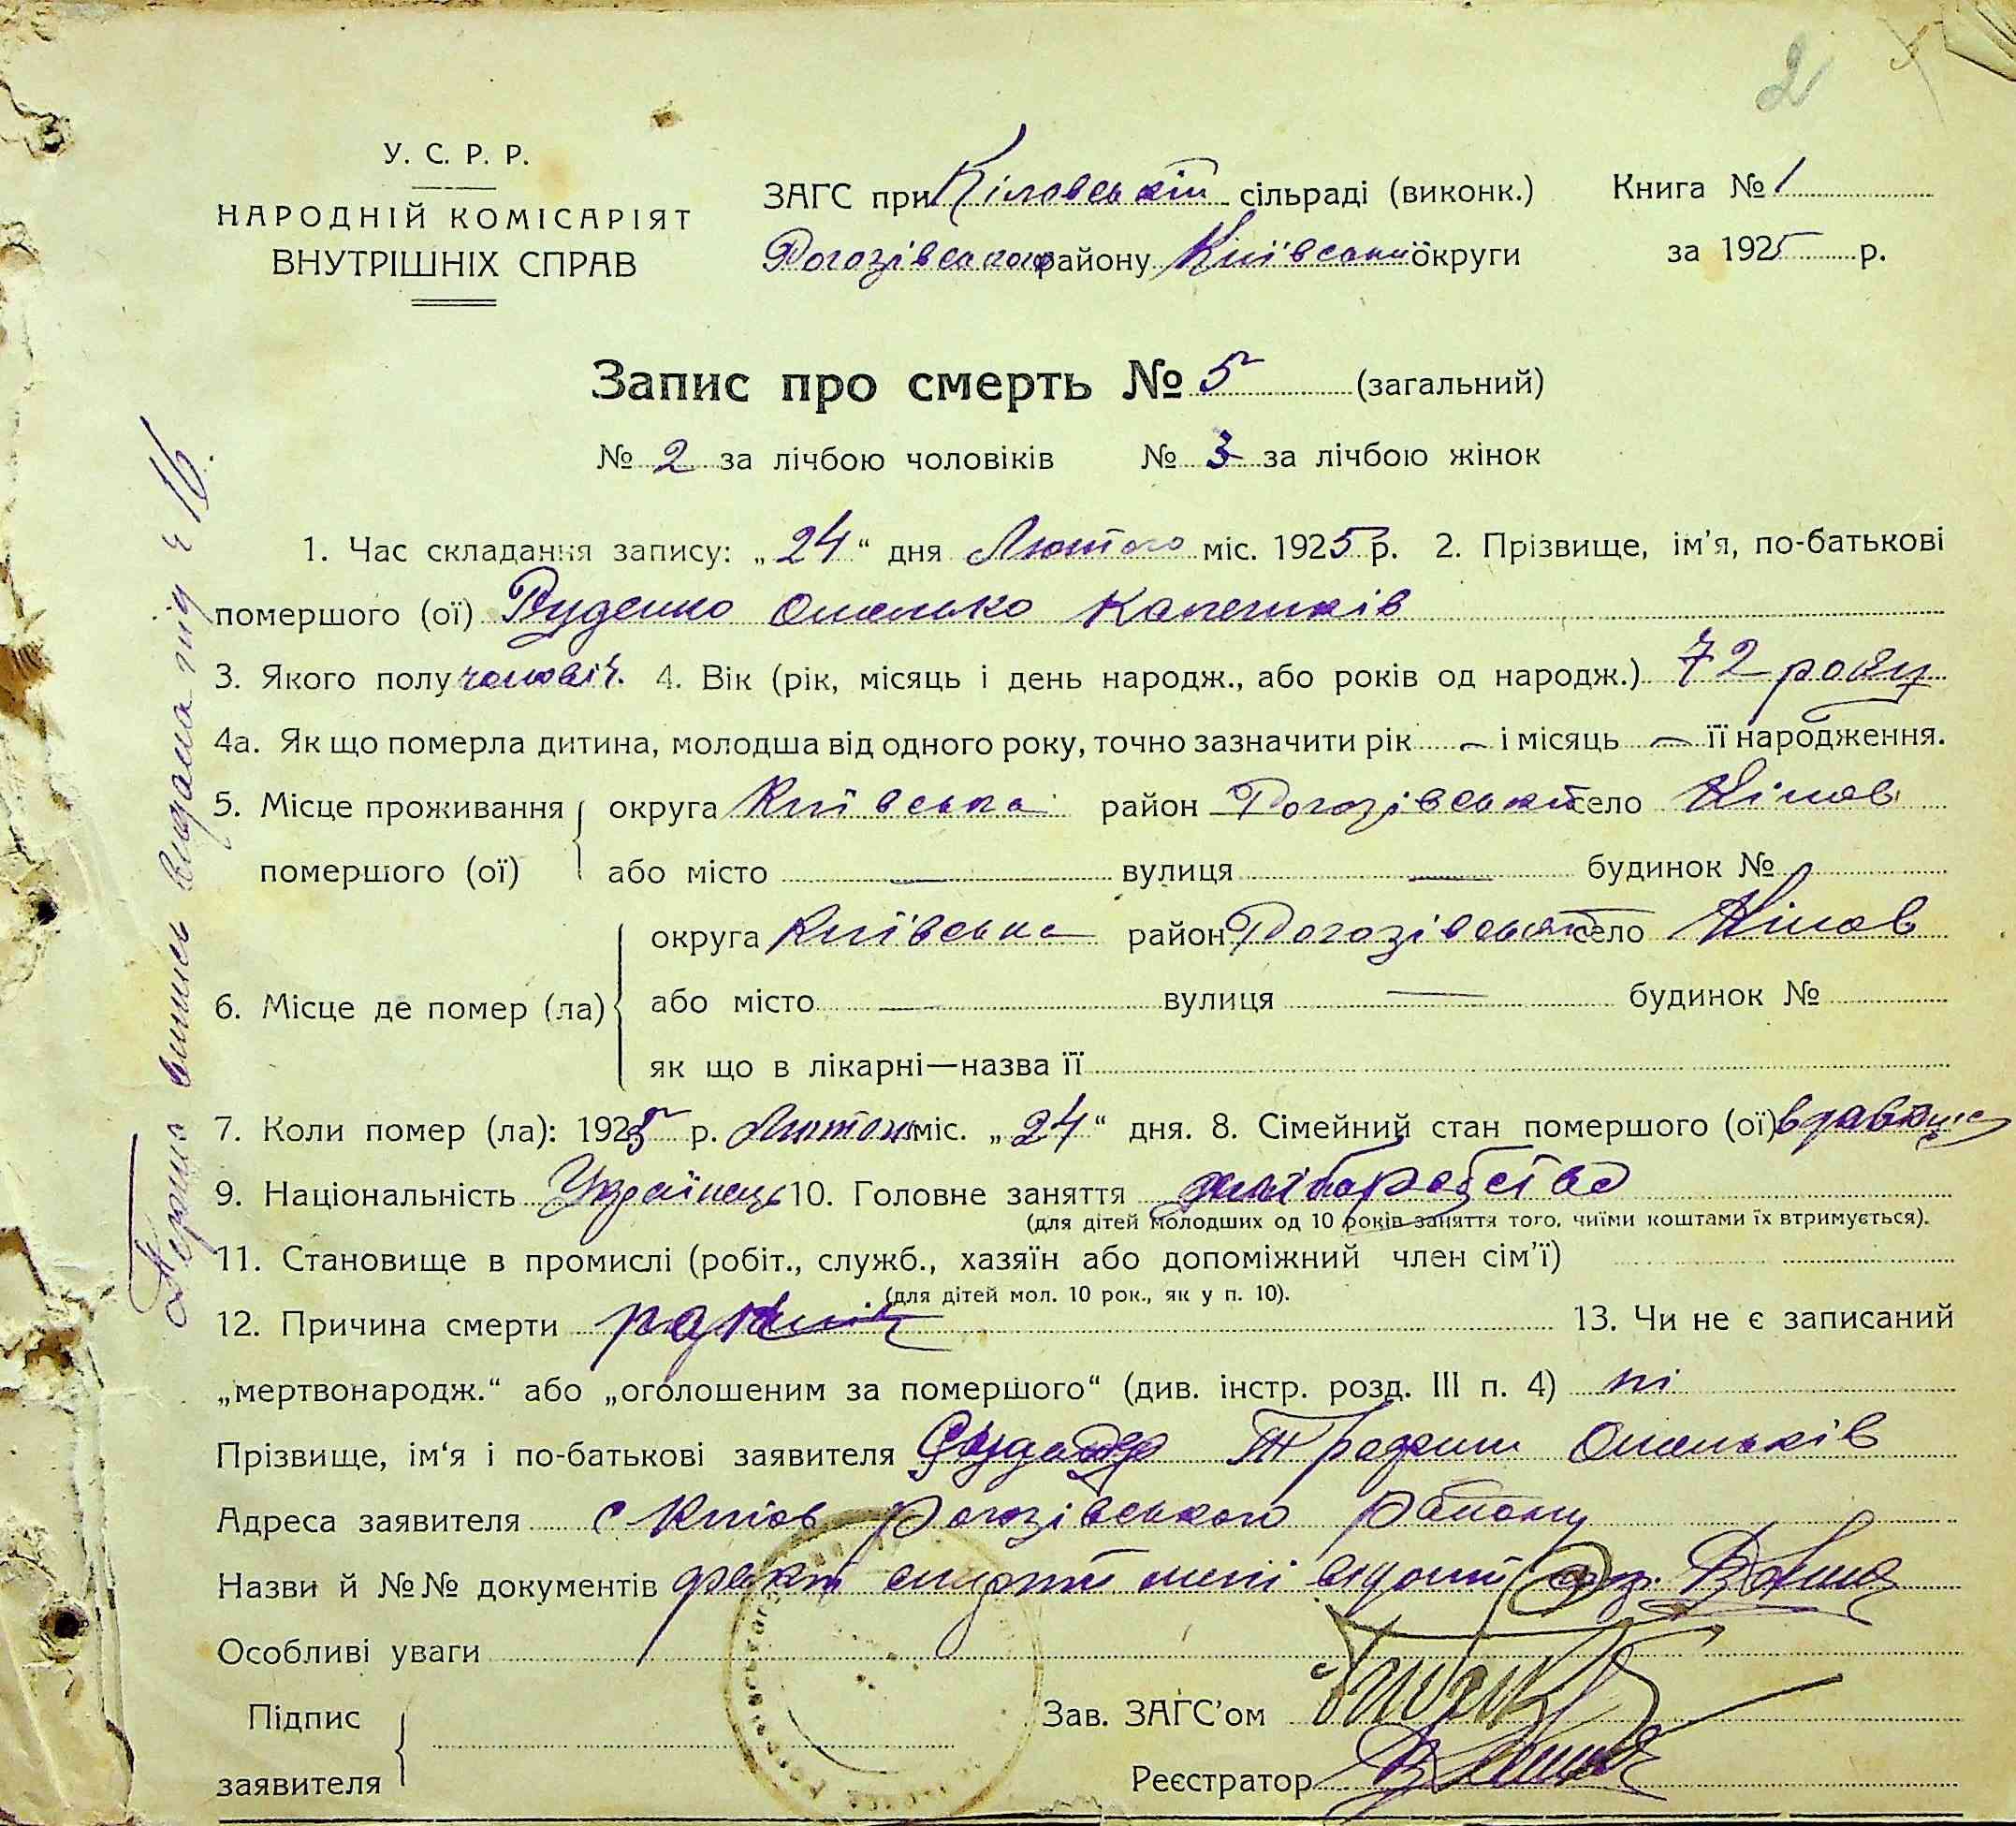 2
У. С. Р. Р.
НАРОДНІЙ КОМІСАРІЯТ
ВНУТРІШНІХ СПРАВ
ЗАГС при Кіловській сільраді (виконк.)
Рогозівського району Київської округи
Книга № 1
за 1925 р.
Запис про смерть № 5 (загальний)
№ 2 за лічбою чоловіків № 3 за лічбою жінок
1. Час складання запису: „24“ дня Лютого міс. 1925 р. 2. Прізвище, ім’я, по-батькові
помершого (ої) Руденко Омелько
3. Якого полу чоловіч. 4. Вік (рік, місяць і день народж., або років од народж.) 72 роки
4а. Як що померла дитина, молодша від одного року, точно зазначити рік — і місяць — її народження.
5. Місце проживання помершого (ої) округа Київська район Рогозівський село Кілов
або місто — вулиця — будинок №
6. Місце де помер (ла) округа Київська район Рогозівський село Кілов
або місто — вулиця — будинок №
як що в лікарні—назва її
7. Коли помер (ла): 1925 р. Лютого міс. „24“ дня. 8. Сімейний стан помершого (ої)
9. Національність Українець 10. Головне заняття хліборобство
(для дітей молодших од 10 років заняття того, чиїми коштами їх втримується).
11. Становище в промислі (робіт., служб., хазяїн або допоміжний член сім’ї)
(для дітей мол. 10 рок., як у п. 10).
12. Причина смерти 13. Чи не є записаний
„мертвонародж.“ або „оголошеним за помершого“ (див. інстр. розд. III п. 4) ні
Прізвище, ім‘я і по-батькові заявителя Омельків
Адреса заявителя с Кілов Рогозівського Району
Назви й №№ документів факт смерти мені відомий
Особливі уваги
Підпис
заявителя
Зав. ЗАГС’ом
Реєстратор
Перша випись видана під ч 16.